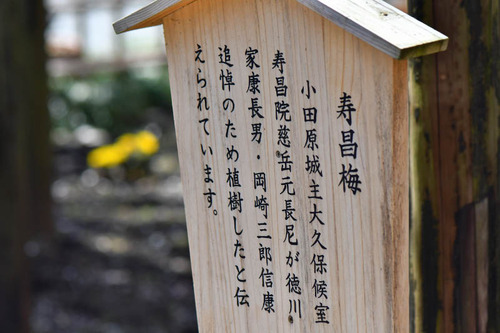 寿昌梅
小田原城主大久保候室
寿昌院慈岳元長尼が徳川
家康長男・岡崎三郎信康
追悼のため植樹したと伝
えられています。